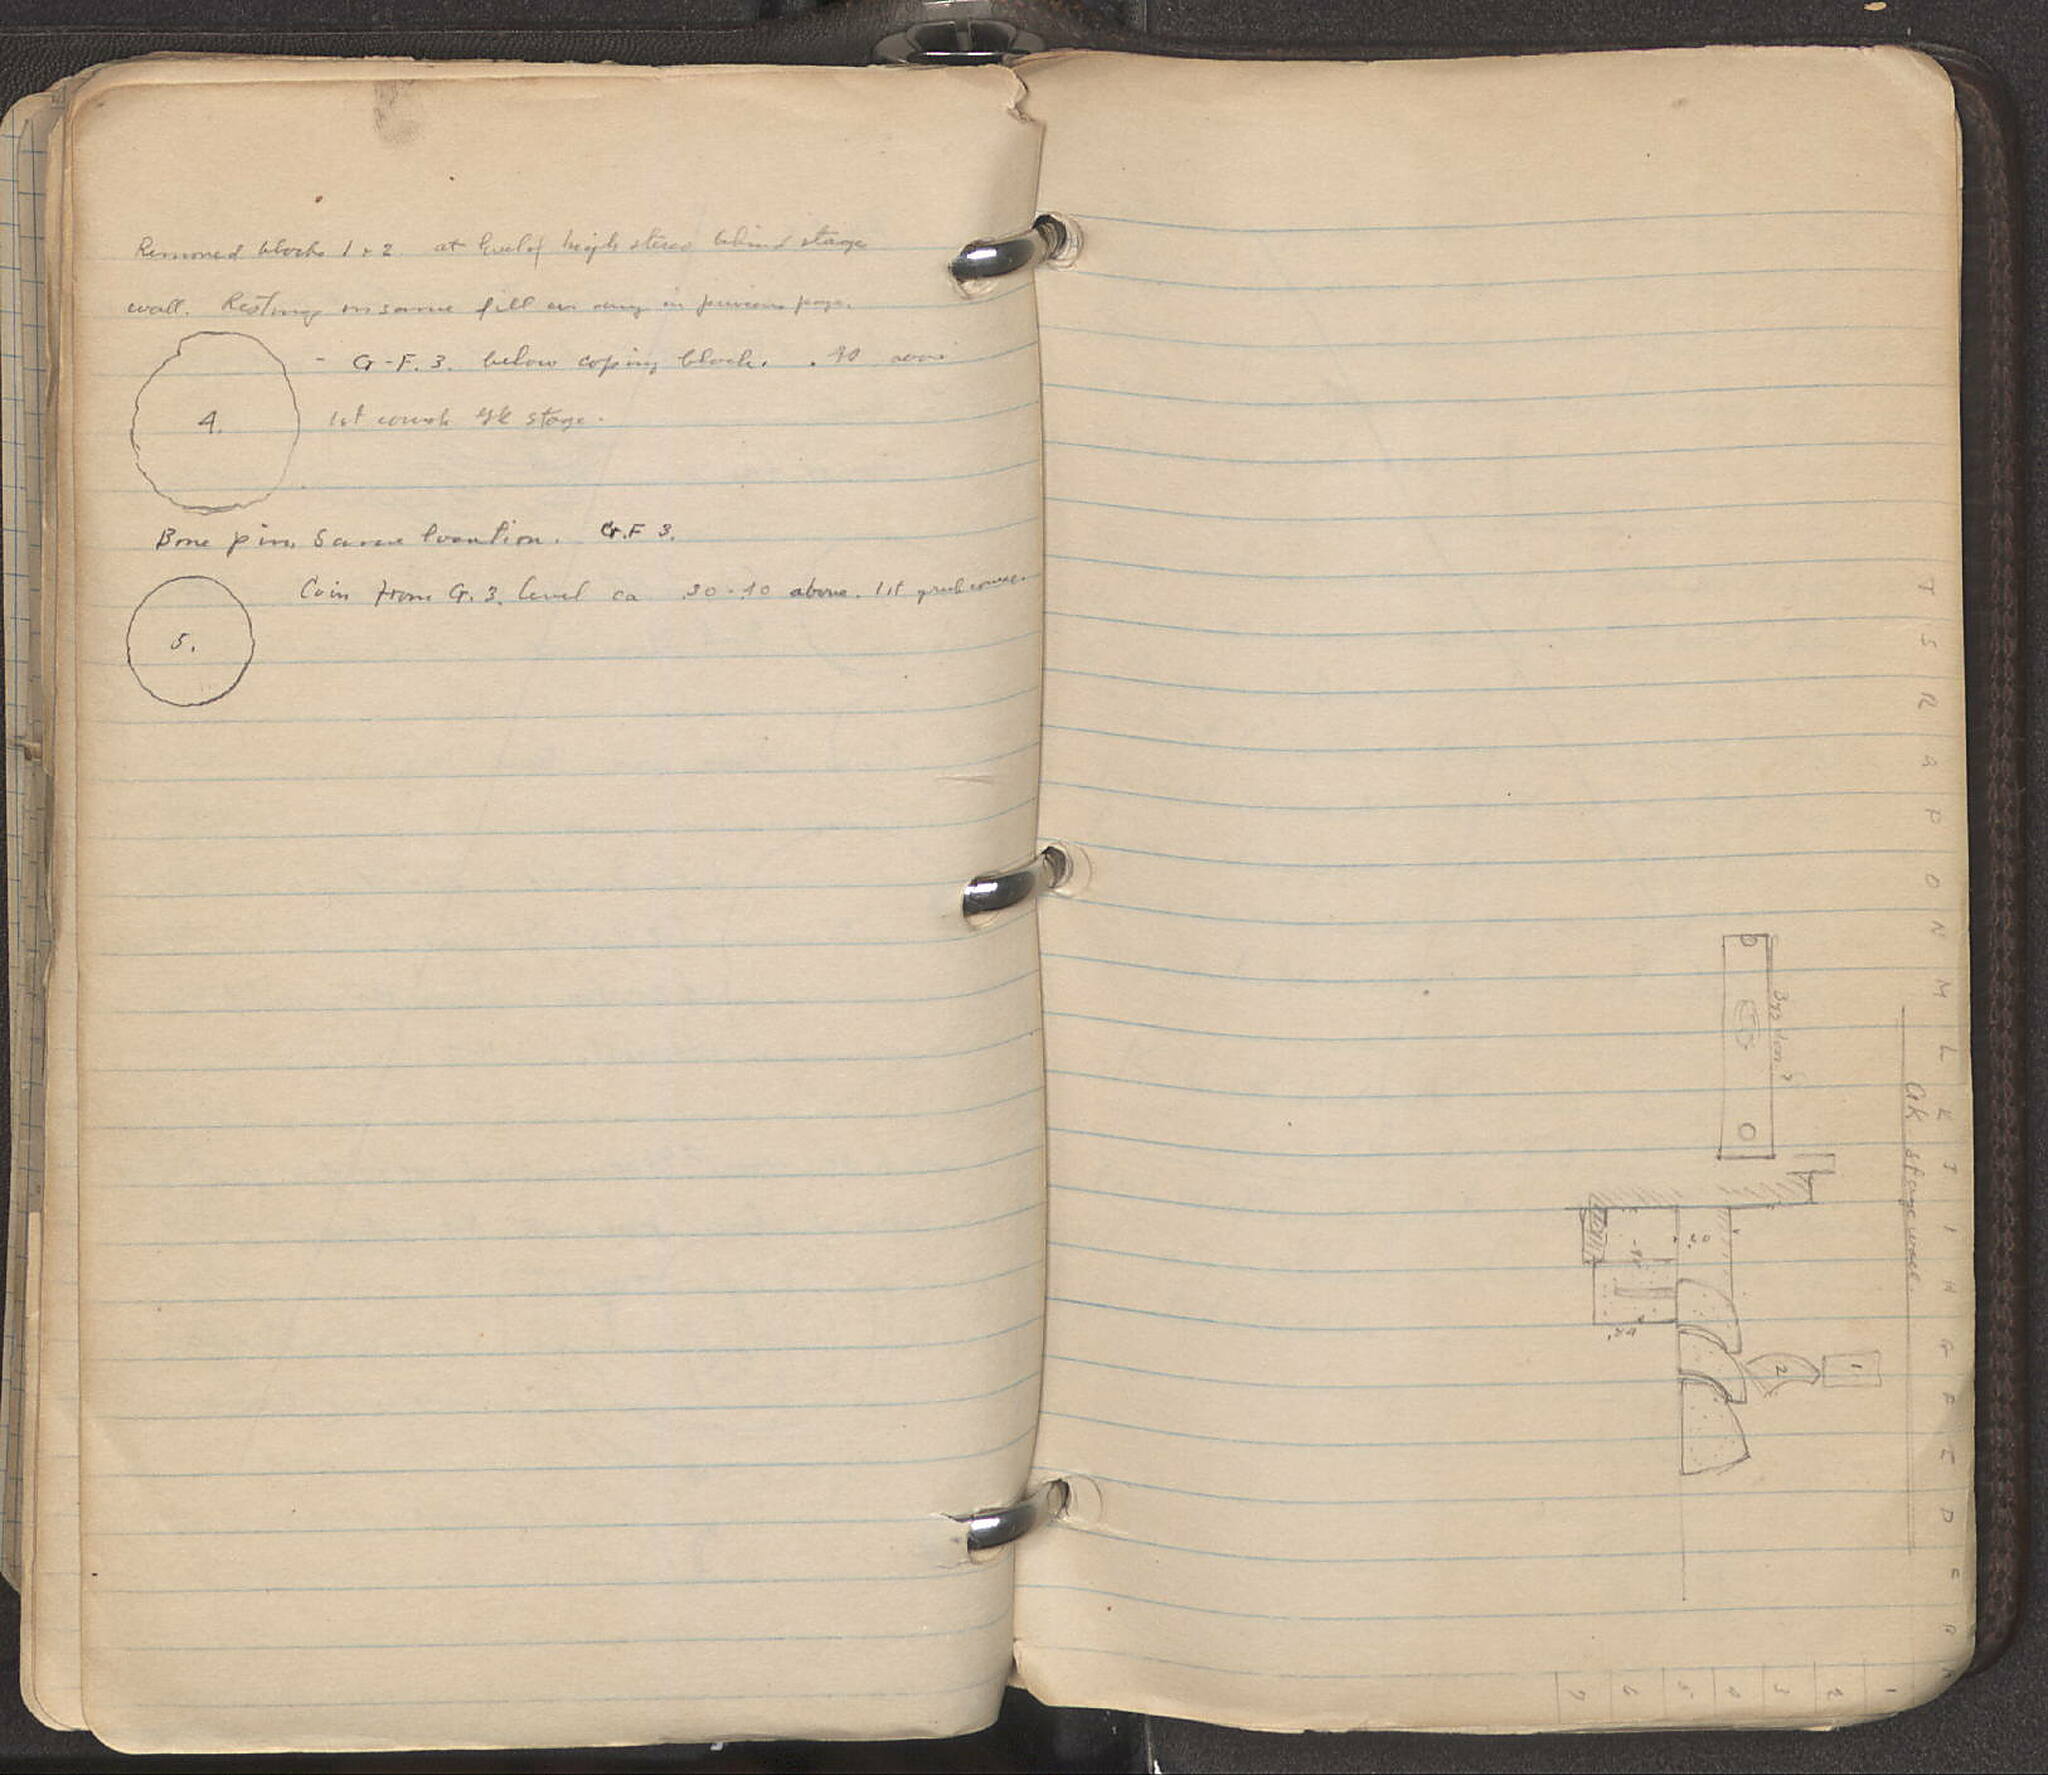 Removed blocks 1 + 2 at level of behind stage
wall. Resting on same fill as in previous page.
- G-F. 3. below coping block. .40
4. 1st course Gk stage.
Bone pin. Same location. G.F 3.
Coin from G. 3. level ca .30-.40 above. 1st greek course.
5.
T S R Q P O N M L K J I H G F E D C B A
GK stage wall
Byz
1
2
7 6 5 4 3 2 1